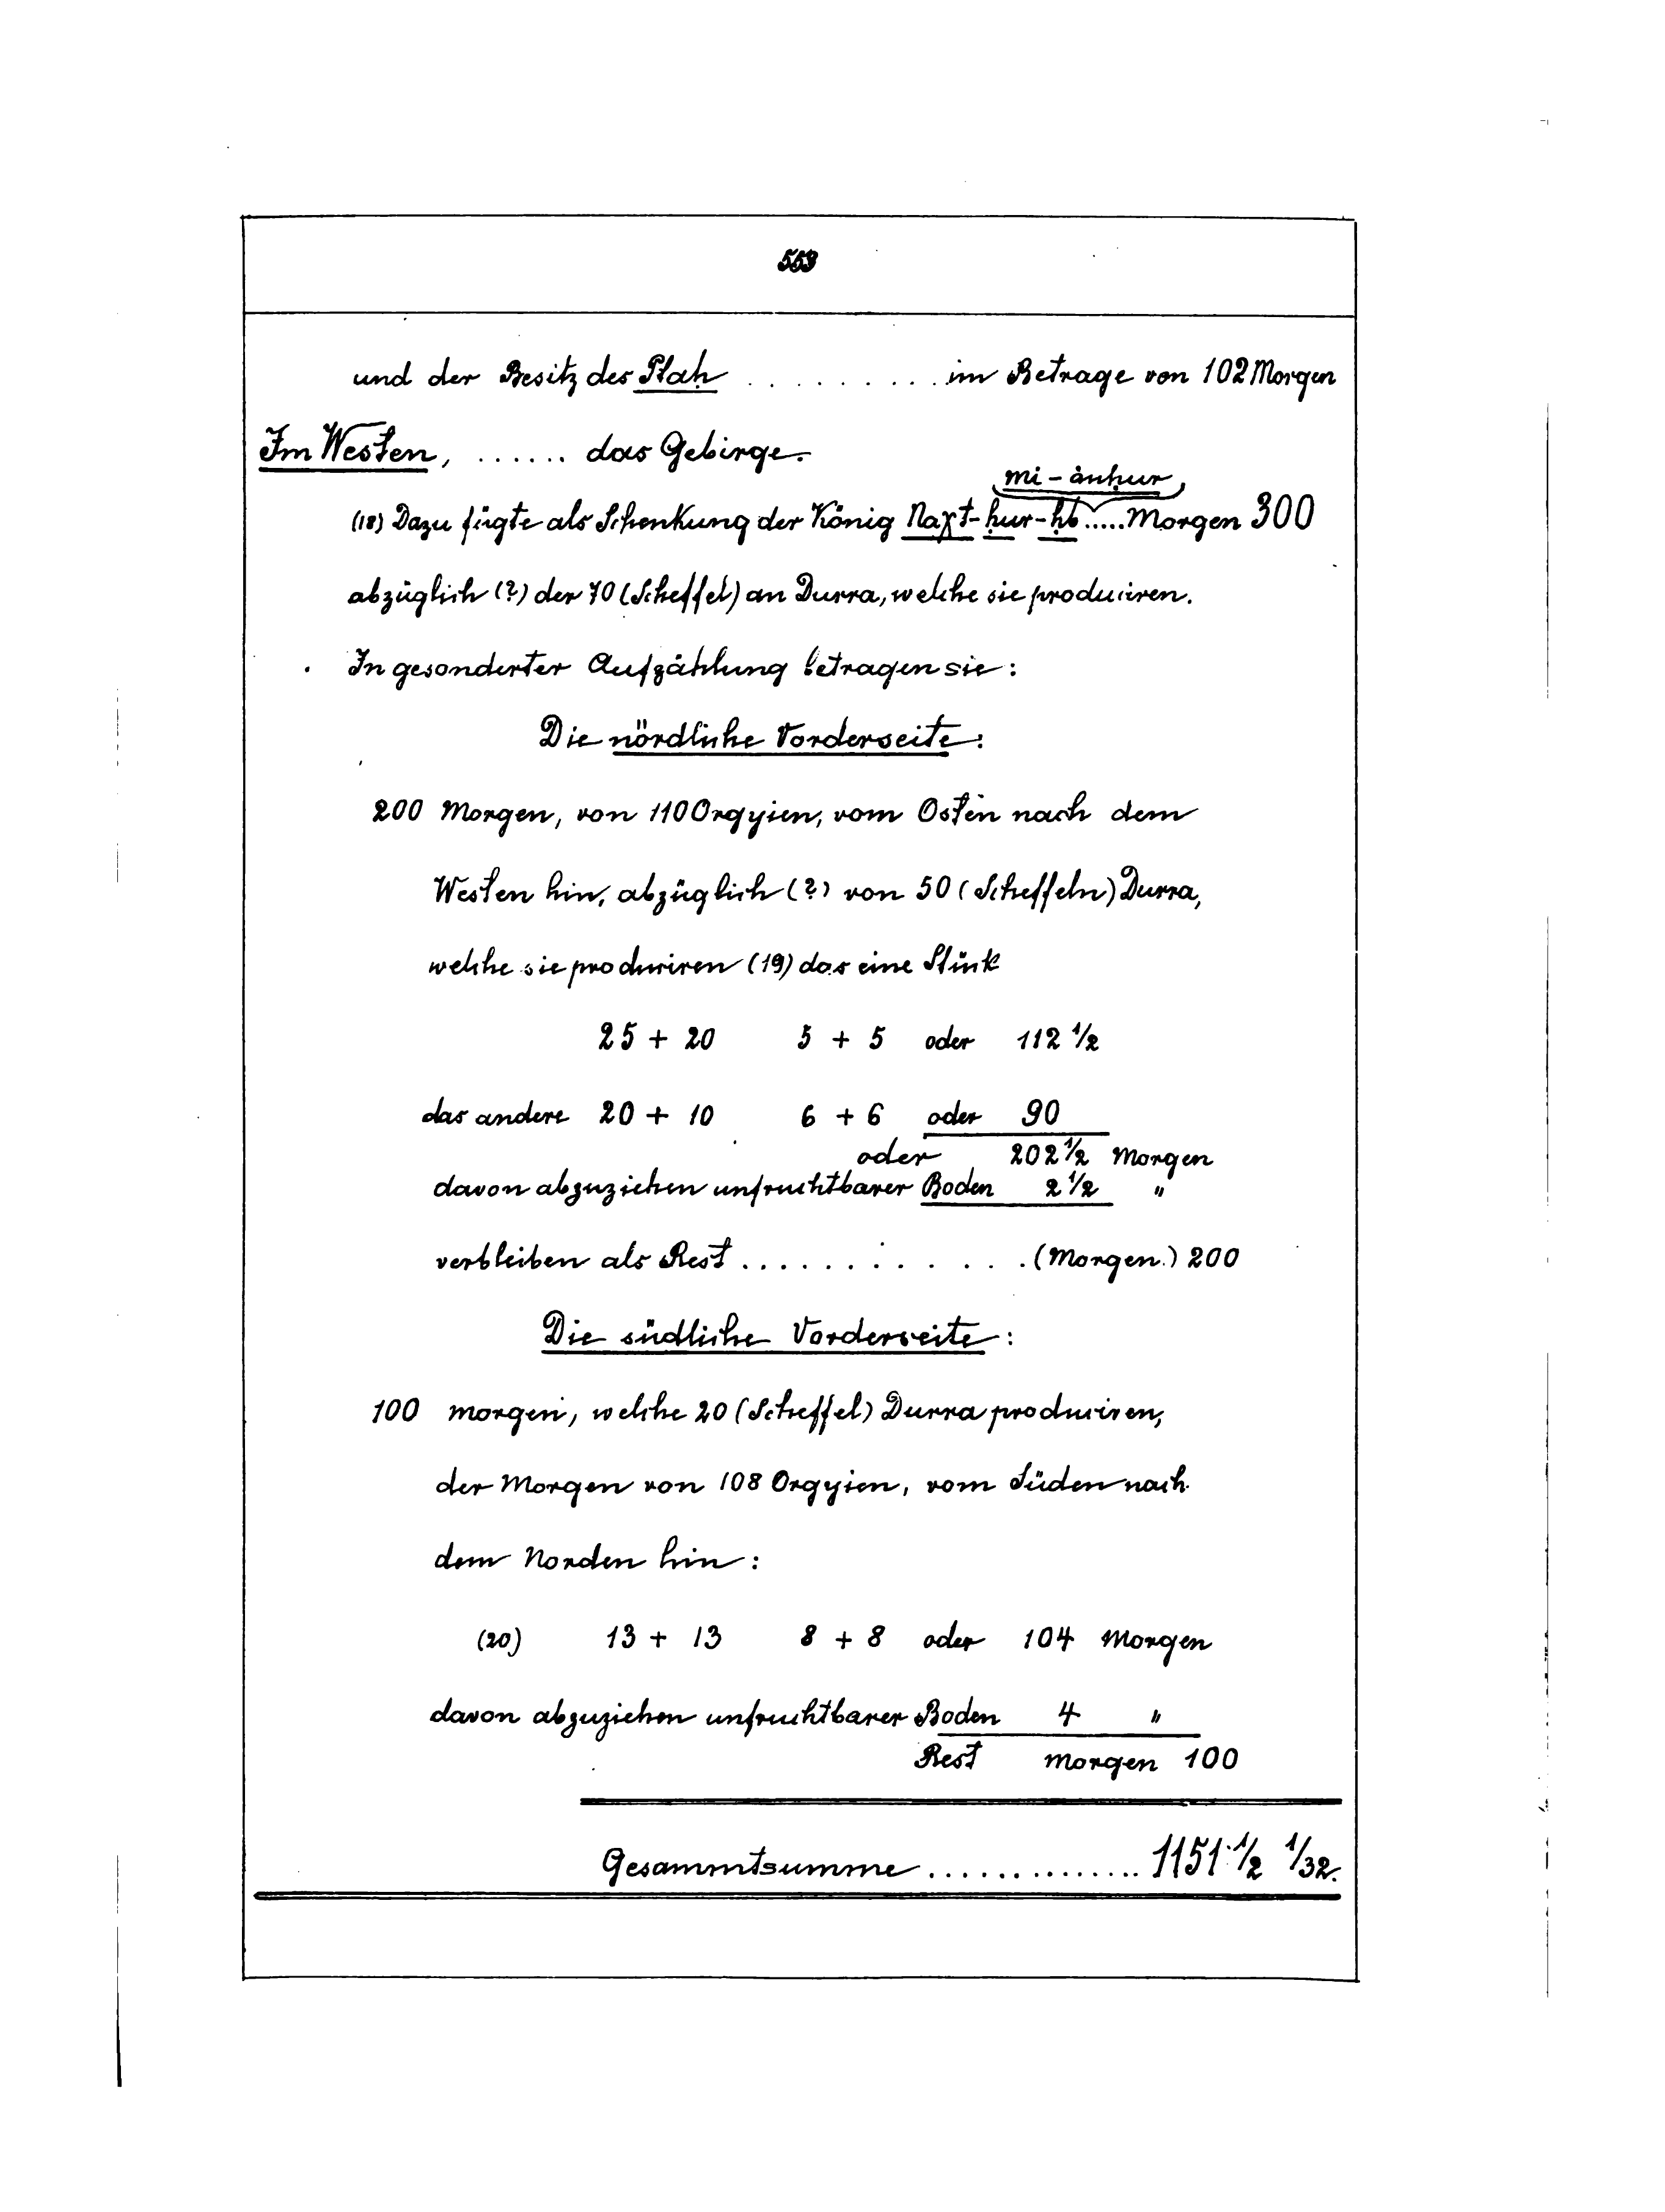 553
und der Besitz des Ptaḥ . . . . . . . . . im Betrage von 102 Morgen
Im Westen, ...... das Gebirge.
mi-ànḥur
(18) Dazu fügte als Schenkung der König Naχt-ḥur-ḥb.....Morgen 300
abzüglich (?) der 70 (Scheffel) an Durra, welche sie produciren.
In gesonderter Aufzählung betragen sie:
Die nördliche Vorderseite:
200 Morgen, von 110 Orgyien, vom Osten nach dem
Westen hin, abzüglich (?) von 50 (Scheffeln) Durra,
welche sie produciren (19) das eine Stück
25 + 20 5 + 5 oder 112 1/2
das andere 20 + 10 6 + 6 oder 90
oder 202 1/2 Morgen
davon abzuziehen unfruchtbarer Boden 2 1/2 "
verbleiben als Rest . . . . . . . . . . . . . (Morgen.) 200
Die südliche Vorderseite:
100 Morgen, welche 20 (Scheffel) Durra produciren,
der Morgen von 108 Orgyien, vom Süden nach
dem Norden hin:
(20) 13 + 13 8 + 8 oder 104 Morgen
davon abzuziehen unfruchtbarer Boden 4 "
Rest Morgen 100
Gesammtsumme .............. 1151 1/2 1/32.